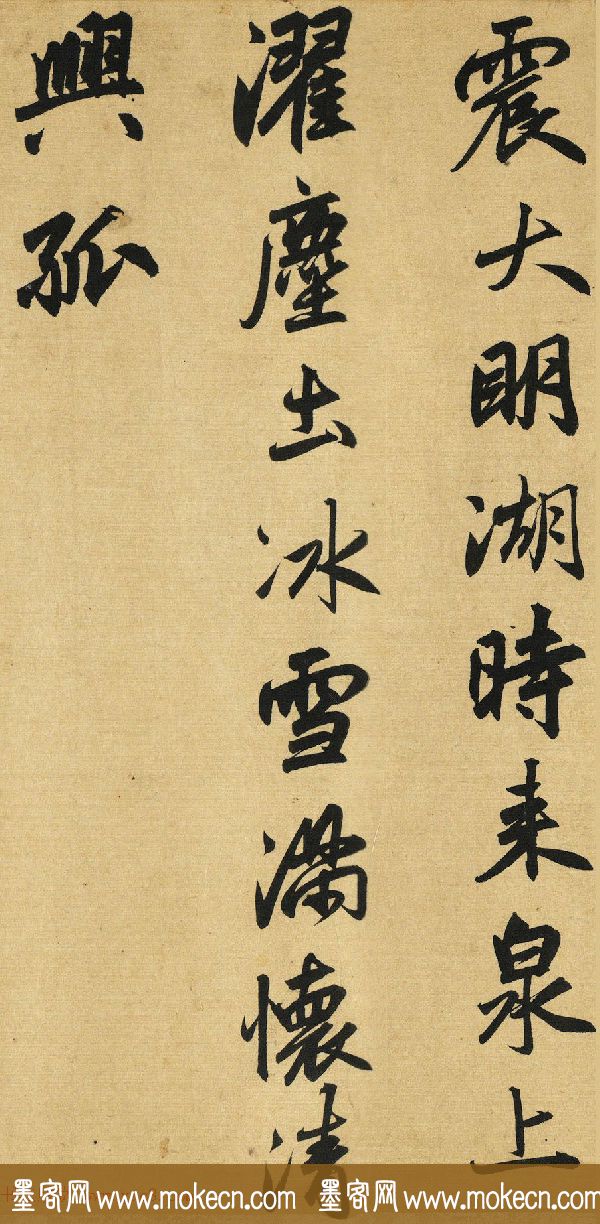 震大明湖時来泉上
濯塵土冰雪滿懷清
興孤
墨客网 www.mokecn.com 墨客网 www.mokecn.com